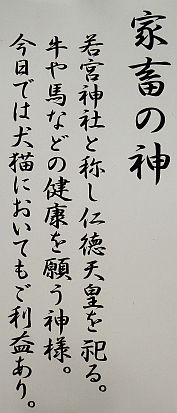 家畜の神
若宮神社と称し仁徳天皇を祀る。
牛や馬などの健康を願う神様。
今日では犬猫においてもご利益あり。